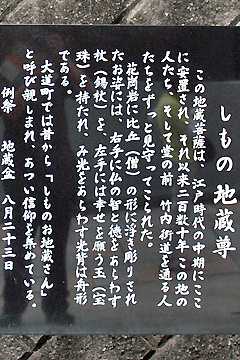 しもの地蔵尊
この地蔵菩薩は、江戸時代の中期にここ
に安置され、それ以来二百数十年この地の
人たち、そして堂の前、竹内街道を通る人
たちをずっと見守ってこられた。
花崗岩に比丘（僧）の形に浮き彫りされ
たお姿には、右手に仏の智と徳をあらわす
杖（錫杖）を、左手には幸せを願う玉（宝
珠）を持たれ、み光をあらわす光背は舟形
である。
大道町では昔から「しものお地蔵さん」
と呼び親しまれ、あつい信仰を集めている。
例祭 地蔵盆 八月二十三日